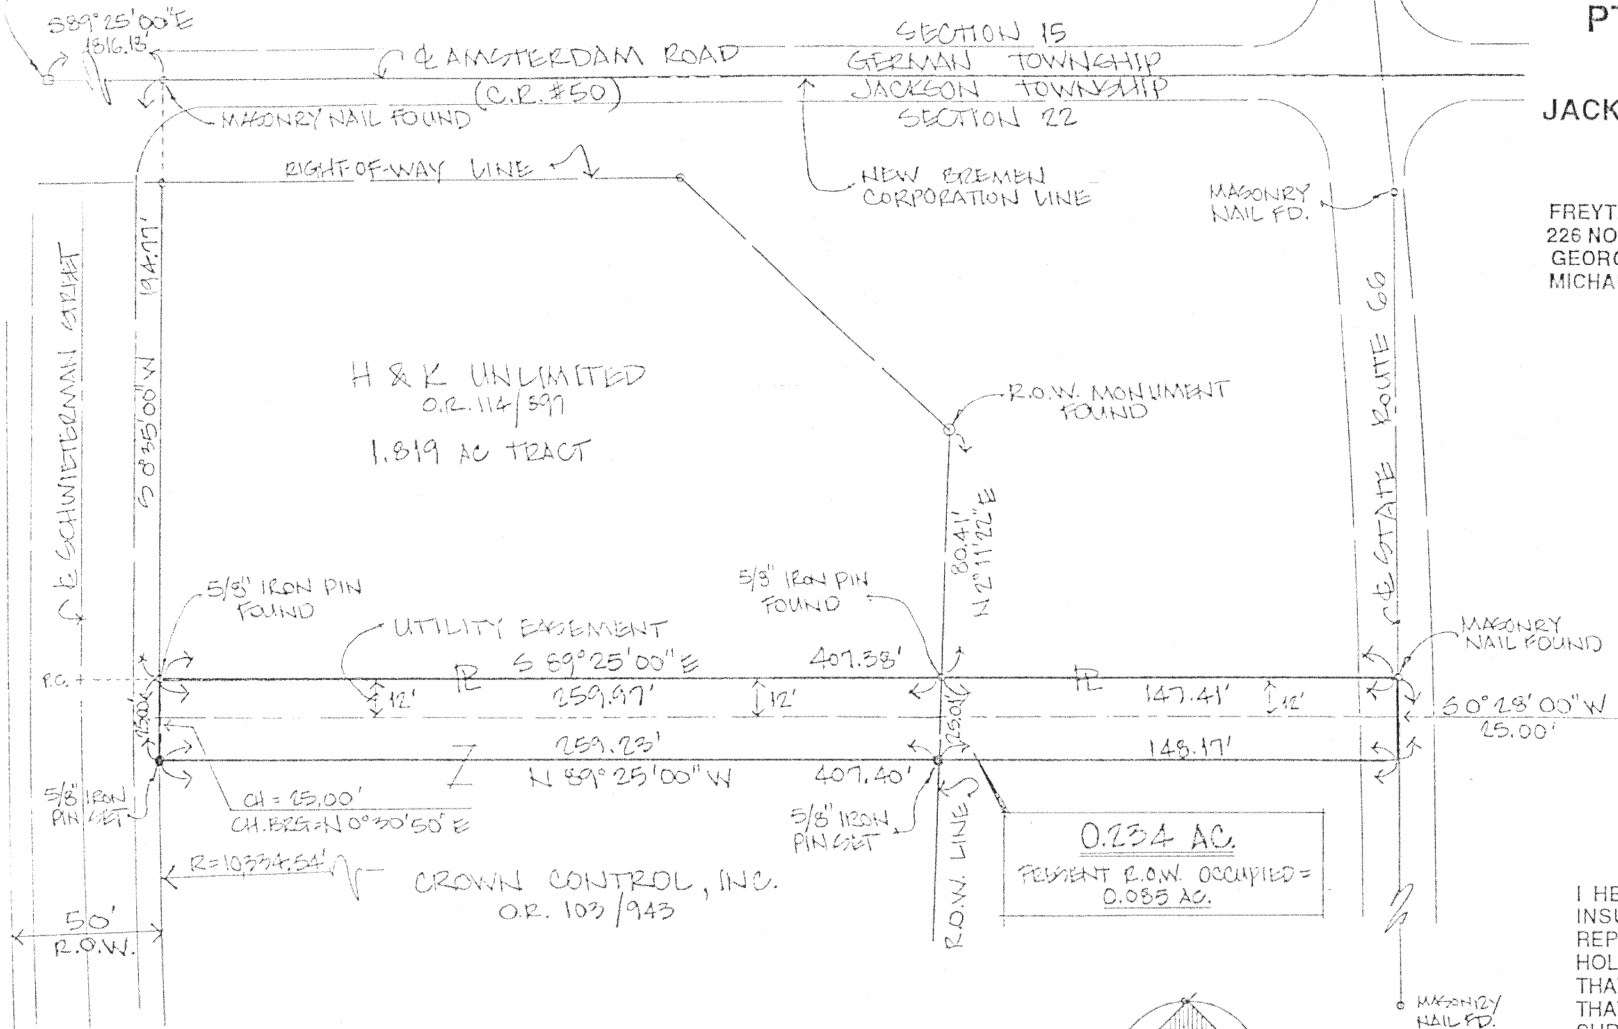 S89°25'00"E
1816.13'
℄ AMSTERDAM ROAD
(C.R. #50)
SECTION 15
GERMAN TOWNSHIP
JACKSON TOWNSHIP
SECTION 22
PT
JACK
MASONRY NAIL FOUND
RIGHT-OF-WAY LINE
NEW BREMEN
CORPORATION LINE
MASONRY
NAIL FD.
FREYT
226 NO
GEORG
MICHA
℄ SCHWIETERMAN STREET
S 0°35'00" W 194.77'
H & K UNLIMITED
O.R. 114/897
1.819 AC TRACT
R.O.W. MONUMENT
FOUND
80.41'
N 2°11'22" E
℄ STATE ROUTE 66
5/8" IRON PIN
FOUND
5/8" IRON PIN
FOUND
UTILITY EASEMENT
MASONRY
NAIL FOUND
P.C.
S 89°25'00" E 407.38'
12' 259.97' 12' 147.41' 12'
25.00'
25.01'
S 0°28'00" W
25.00'
259.23' 148.17'
N 89°25'00" W 407.40'
5/8" IRON
PIN SET
CH = 25.00'
CH.BRG=N 0°30'50" E
5/8" IRON
PIN SET
R=10,334.54'
CROWN CONTROL, INC.
O.R. 103/943
R.O.W. LINE
0.234 AC.
PRESENT R.O.W. OCCUPIED =
0.085 AC.
50'
R.O.W.
I HE
INSU
REP
HOL
THA
THA
MASONRY
NAIL FD.